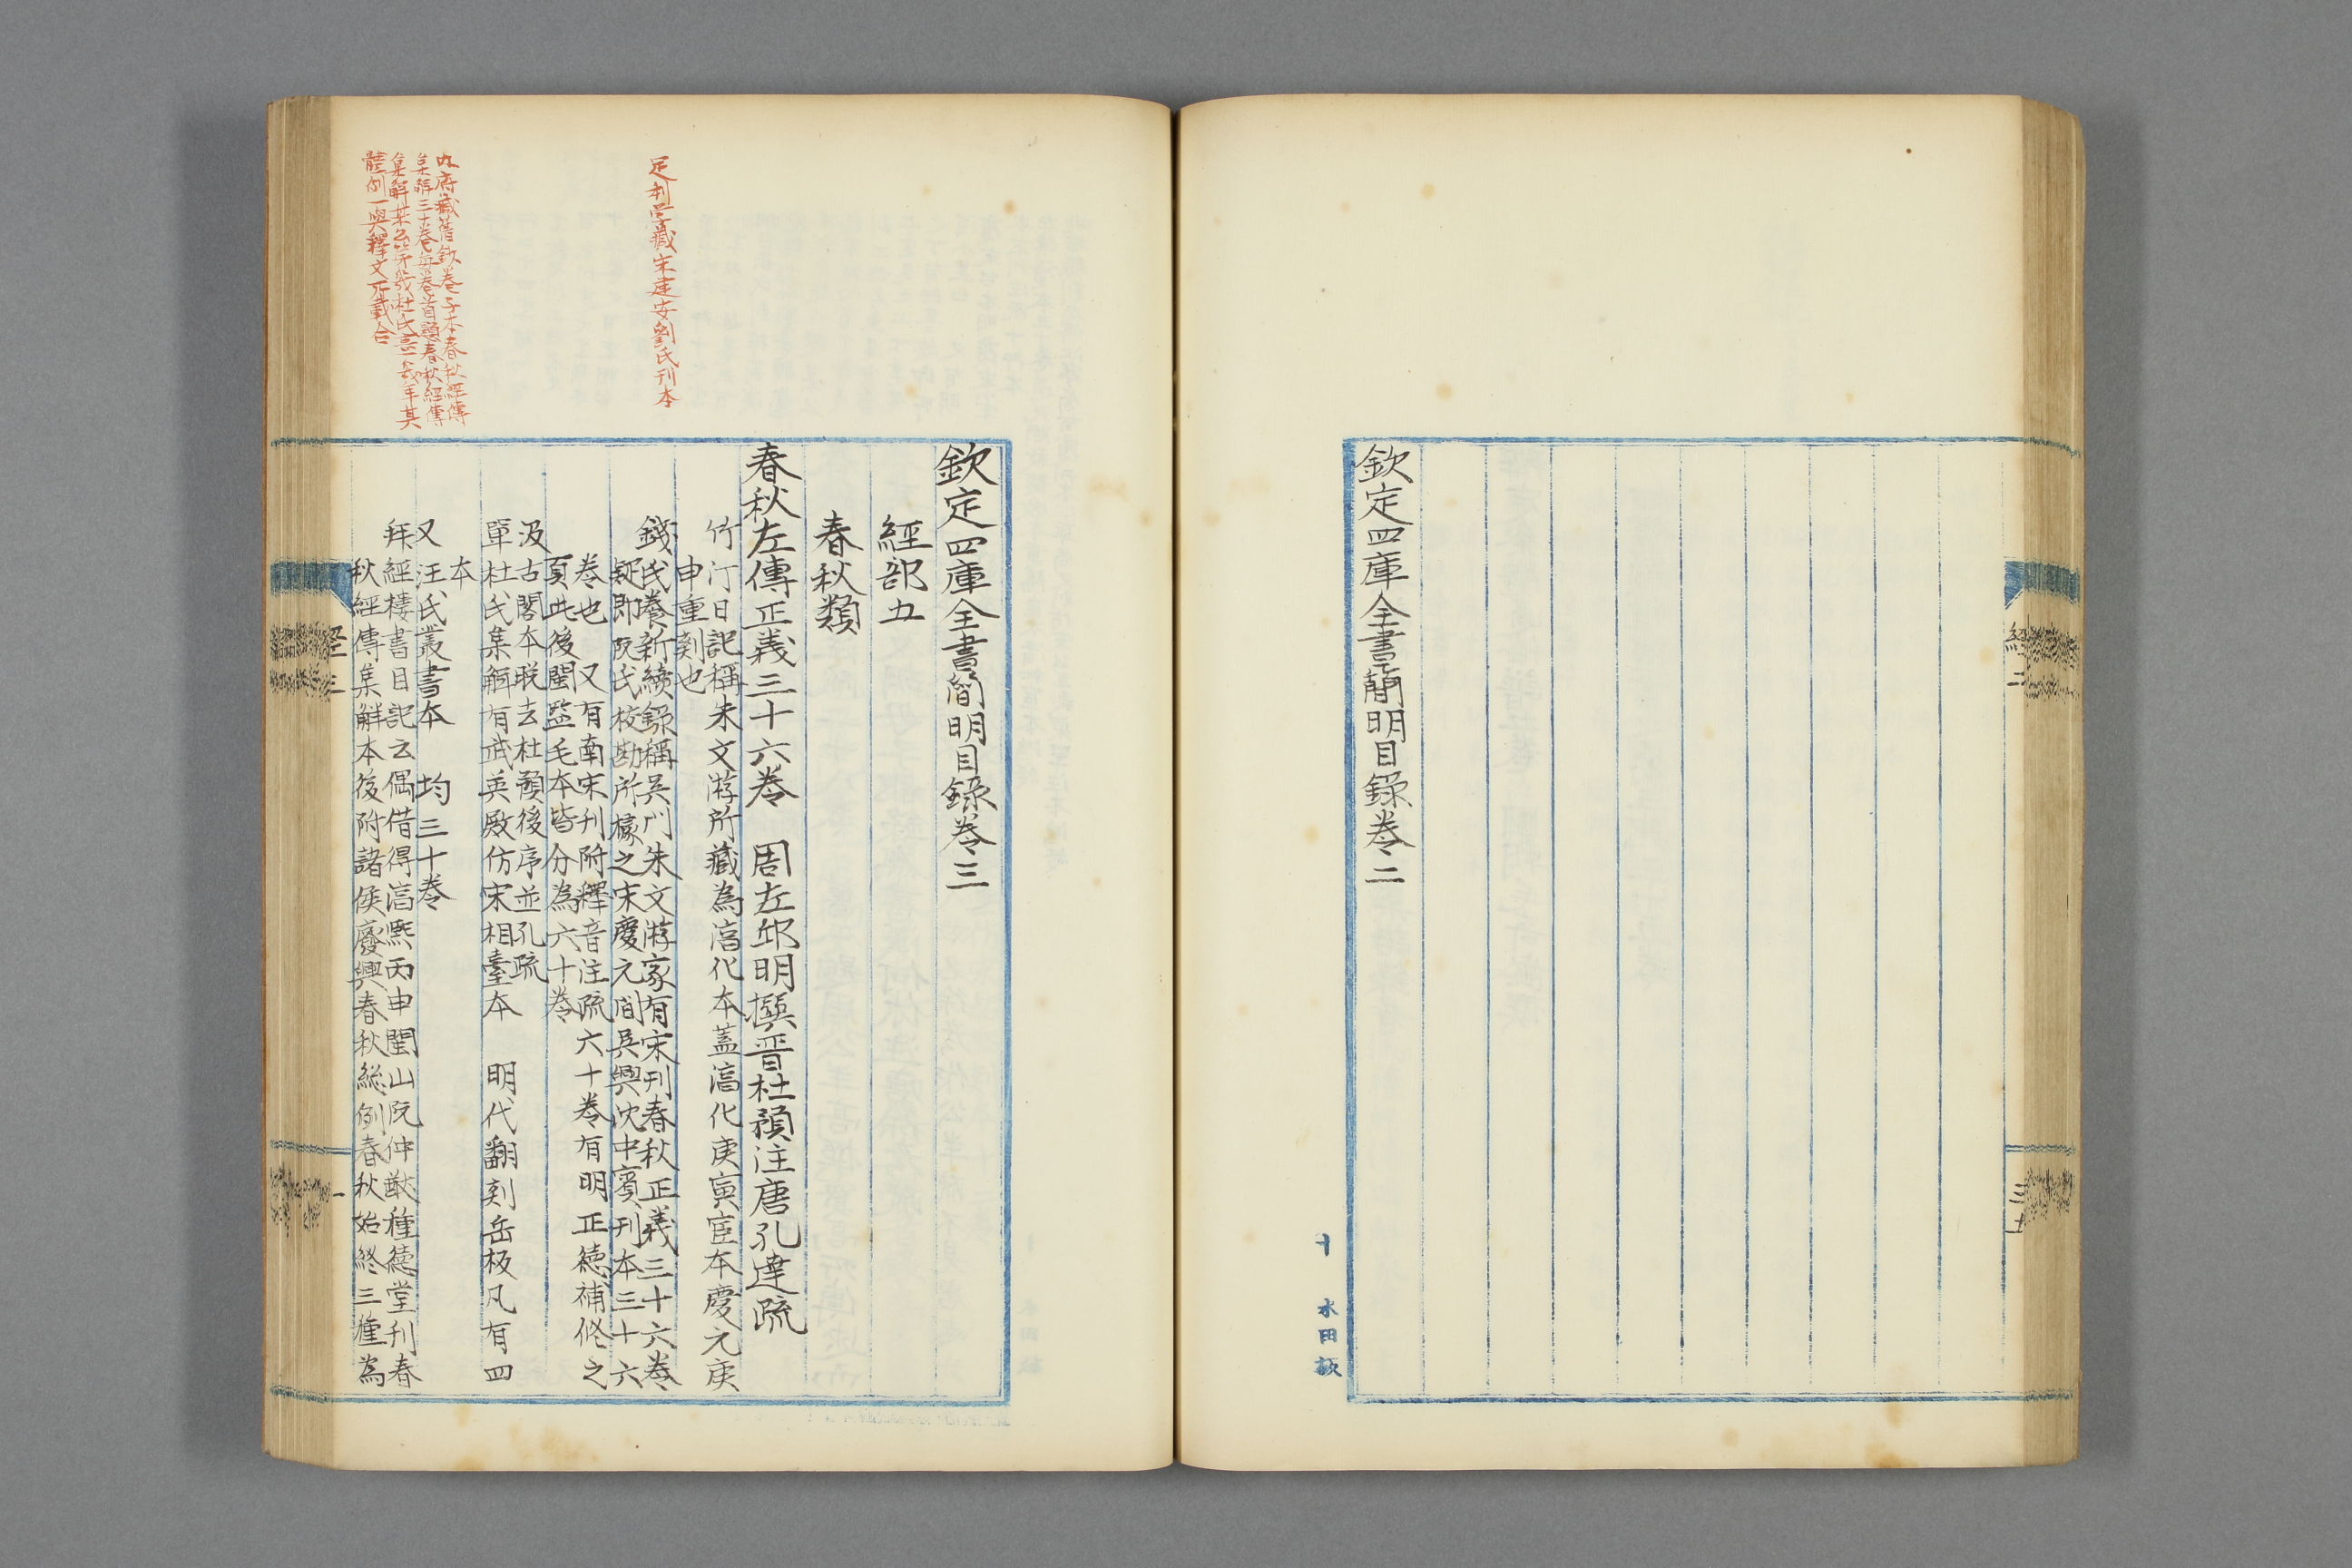 欽定四庫全書簡明目錄卷二
經二
三十
十 水田
欽定四庫全書簡明目錄卷三
經部五
春秋類
春秋左傳正義三十六卷 周左邱明撰晋杜預注唐孔達疏
竹汀日記稱朱文游所藏為淳化本蓋淳化庚寅官本慶元庚
申重刻也
錢氏養新續錄稱吳門朱文游家有宋刊春秋正義三十六卷
疑即阮氏校勘所據之宋慶元間吳興沈中賓刊本三十六
卷也 又有南宋刊附釋音注疏六十卷有明正德補修之
頁此後閩監毛本皆分為六十卷
汲古閣本脫去杜預後序並孔疏
單杜氏集解有武英殿仿宋相臺本 明代翻刻岳板凡有四
本
又汪氏叢書本 均三十卷
拜經樓書目記云偶借得淳熙丙申閩山阮仲猷種德堂刊春
秋經傳集解本後附諸侯廢興春秋總例春秋始終三種為
足利學藏宋建安劉氏刊本
內府藏舊鈔卷子本春秋經傳
集解三十卷每卷首題春秋經傳
集解某公第幾杜氏盡幾年其
體例一與釋文所載合
經三
一